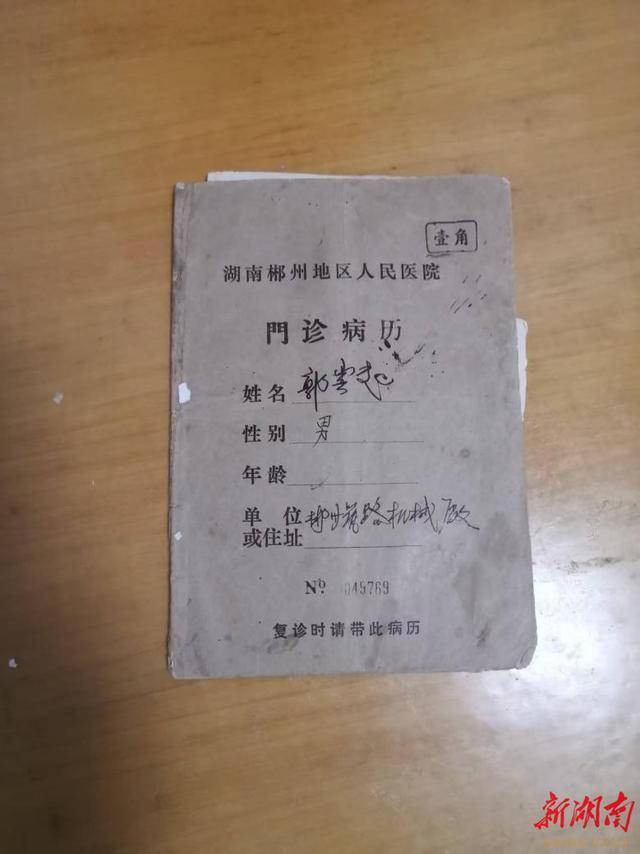 壹角
湖南郴州地区人民医院
門诊病历
姓名 郭
性别 男
年龄
单位 郴州筑路机械厂
或住址
№ 045769
复诊时请带此病历
新湖南